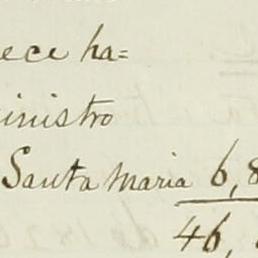 ece ha=
inistro
Santa Maria 6,8
46,